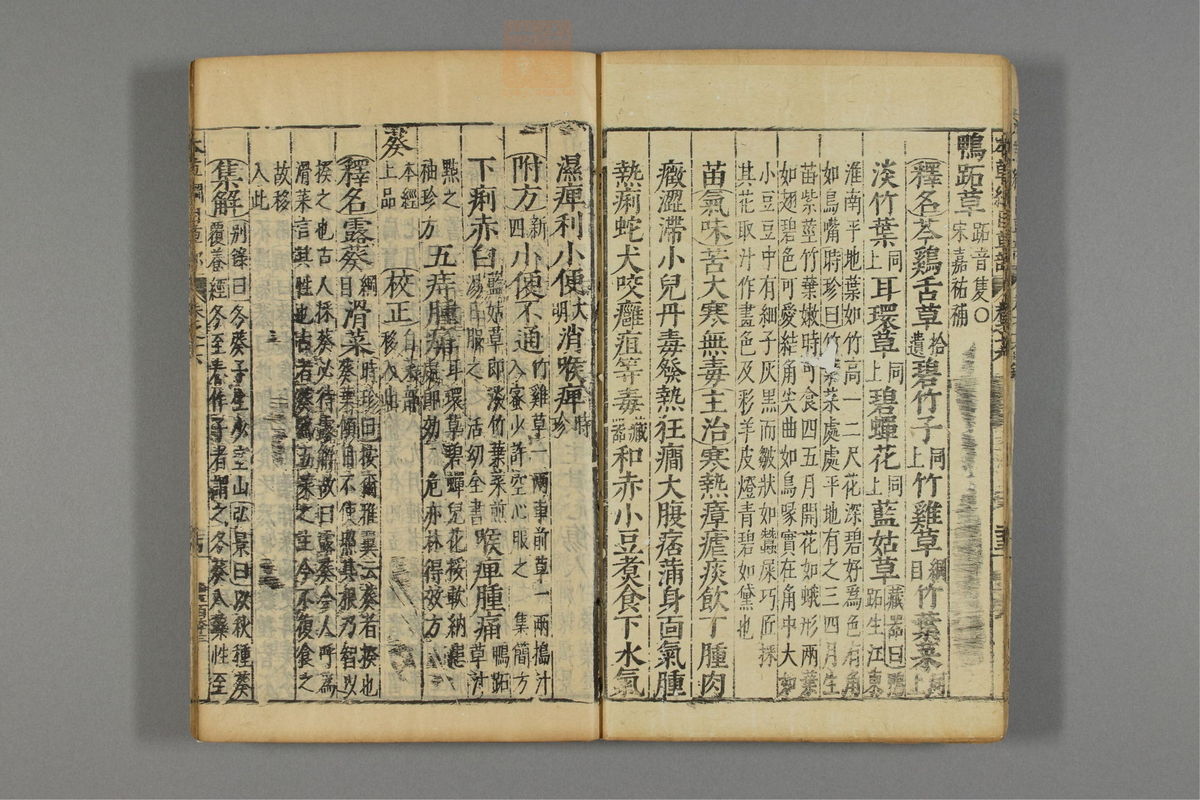 鴨跖草 跖音隻〇
宋嘉祐補
釋名 雞舌草 拾遺 碧竹子 同上 竹雞草 綱目 竹葉菜 同上
淡竹葉 同上 耳環草 同上 碧蟬花 同上 藍姑草 藏器曰鴨跖生江東
淮南平地葉如竹高一二尺花深碧好為色有角
如鳥嘴時珍曰竹葉菜處處平地有之三四月生
苗紫莖竹葉嫩時可食四五月開花如蛾形兩葉
如翅碧色可愛結角尖曲如鳥喙實在角中大如
小豆豆中有細子灰黑而皺狀如蠶屎巧匠採
其花取汁作畫色及彩羊皮燈青碧如黛也
苗 氣味 苦大寒無毒 主治 寒熱瘴瘧痰飲丁腫肉
癥澀滯小兒丹毒發熱狂癇大腹痞滿身面氣腫
熱痢蛇犬咬癰疽等毒 藏器 和赤小豆煮食下水氣
濕痺利小便 大明 消喉痺 時珍
附方 新四 小便不通 竹雞草一兩車前草一兩搗汁
入蜜少許空心服之 集簡方
下痢赤白 藍姑草即淡竹葉菜煎
湯日服之 活幼全書 喉痺腫痛 鴨跖草汁
點之
袖珍方 五痔腫痛 耳環草碧蟬兒花挼軟納患
處即効 危亦林得效方
葵 本經上品 校正
釋名 露葵 綱目 滑菜 時珍曰按爾雅翼云葵者揆也
葵葉傾日不使照其根乃智以
揆之也古人採葵必待露解故曰露葵今人呼為
滑菜言其性也古者葵為五菜之主今不復食之
故移
入此
集解 別錄曰冬葵子生少室山弘景曰以秋種葵
覆養經冬至春作子者謂之冬葵入藥性至